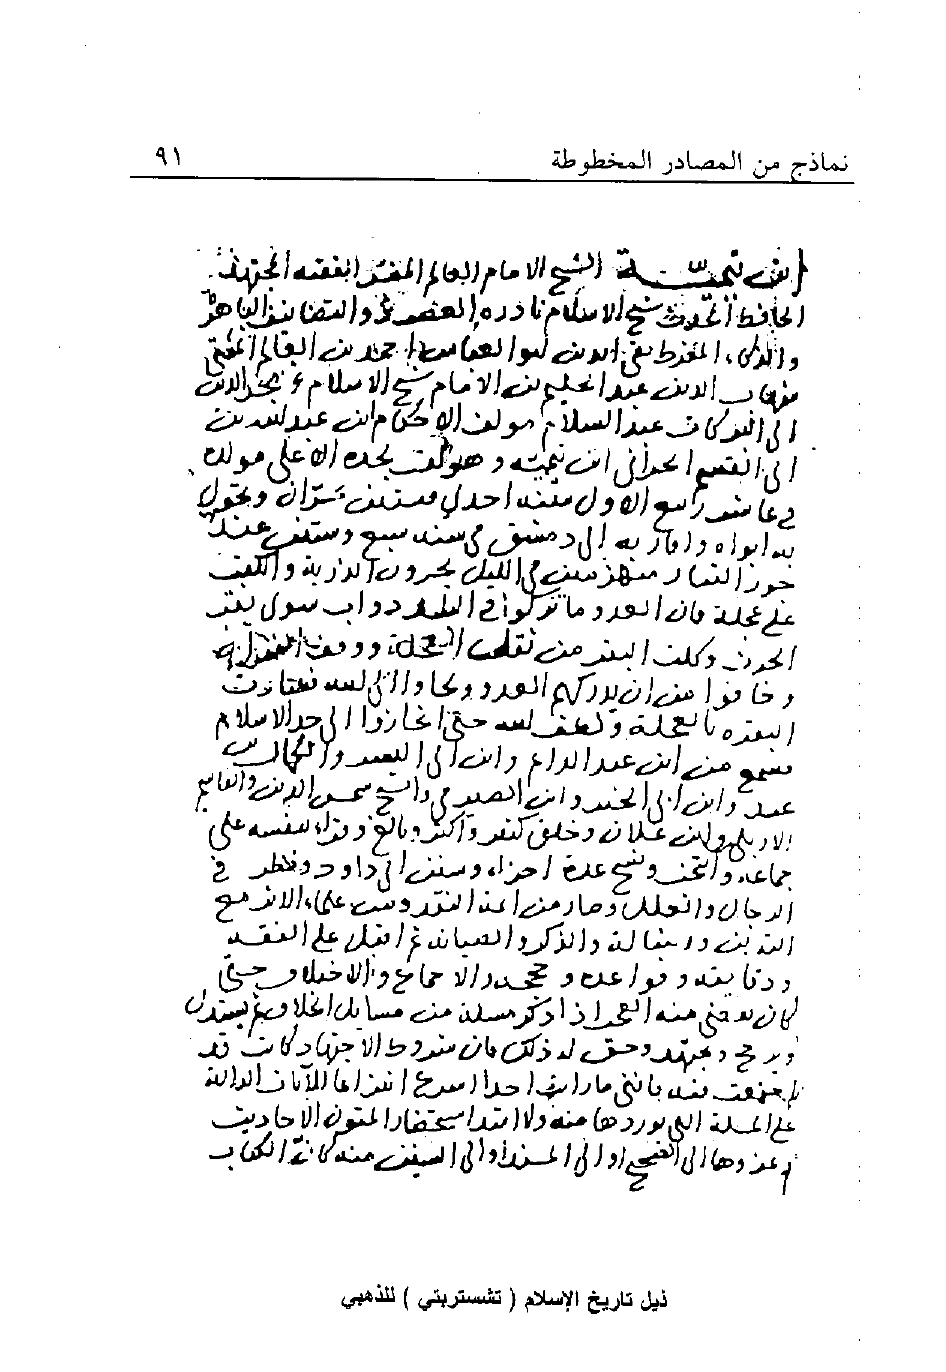 نماذج من المصادر المخطوطة ٩١
ابن تيمية الشيخ الامام العالم المفسر الفقيه المجتهد
الحافظ المحدث شيخ الاسلام نادرة العصر ذو التصانيف الباهرة
والذكاء المفرط تقي الدين ابو العباس احمد بن العالم المفتي
شهاب الدين عبد الحليم بن الامام شيخ الاسلام مجد الدين
ابي البركات عبد السلام مولف الاحكام ابن عبد الله بن
ابي القسم الحراني ابن تيمية وهو لقب لجده الاعلى مولده
في عاشر ربيع الاول سنة احدى وستين بحران وتحول
به ابواه واقاربه الى دمشق في سنة سبع وستين عند
جور التتار منهزمين في الليل يجرون الذرية والكتب
على عجلة فان العدو ما تركوا في البلد دواب سوى بقر
الحرث وكلت البقر من ثقل العجلة ووقف
وخافوا من ان يدركهم العدو ولجاوا الى الله فسارت
البقر بالعجلة ولطف الله حتى انحازوا الى حد الاسلام
فسمع من ابن عبد الدايم وابن ابي اليسر والكمال بن
عبد وابن ابي الخير وابن الصيرفي والشيخ شمس الدين والقاسم
الاربلي وابن علان وخلق كثير واكثر وبالغ وقرا بنفسه على
جماعة وانتخب ونسخ عدة اجزاء وسنن ابي داود ونظر في
الرجال والعلل وصار من ايمة النقد ومن علماء الاثر مع
التدين والذكر والصيانة ثم اقبل على الفقه
ودقايقه وقواعده وحججه والاجماع والاختلاف حتى
كان يقضى منه العجب اذا ذكر مسلة من مسايل الخلاف ثم يستدل
ويرجح ويجتهد وحق له ذلك فان شروط الاجتهاد كانت قد
اجتمعت فيه فانني ما رايت احدا اسرع انتزاعا للايات الدالة
على المسلة التي يوردها منه ولا اشد استحضارا لمتون الاحاديث
وعزوها الى الصحيح او الى المسند او الى السنن منه كان الكتاب
ذيل تاريخ الإسلام ( تشستربتي ) للذهبي